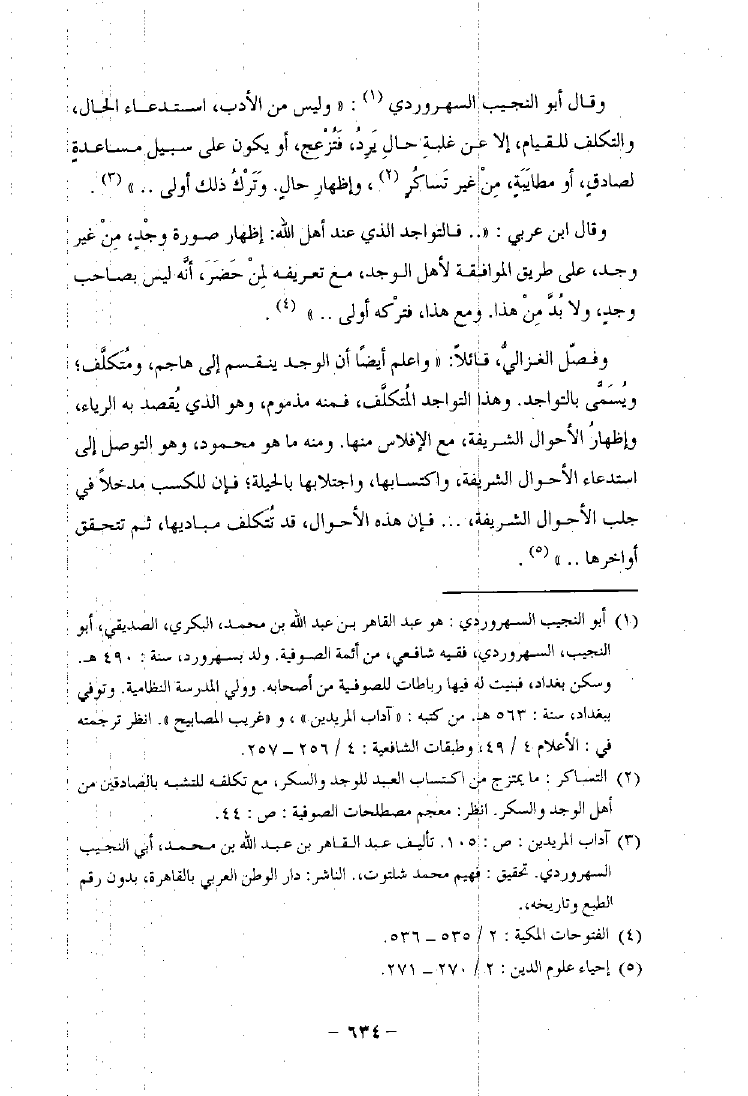 وقال أبو النجيب السهروردي (١) : « وليس من الأدب، استدعاء الحال،
والتكلف للقيام، إلا عن غلبةِ حالٍ يَرِدُ، فَتُزْعج، أو يكون على سبيل مساعدةٍ
لصادقٍ، أو مطايَبَةٍ، مِنْ غير تَساكُرٍ (٢) ، وإظهارِ حالٍ. وَتَرْكُ ذلك أولى .. » (٣) .
وقال ابن عربي : «.. فالتواجد الذي عند أهل الله: إظهار صورة وجْدٍ، مِنْ غير
وجد، على طريق الموافقة لأهل الوجد، مع تعريفه لِمنْ حَضَرَ، أنَّه ليس بصاحب
وجدٍ، ولا بُدَّ مِنْ هذا. ومع هذا، فتركه أولى .. » (٤) .
وفصّل الغزاليُّ، قائلاً: « واعلم أيضًا أن الوجد ينقسم إلى هاجم، ومُتَكلَّف؛
ويُسَمَّى بالتواجد. وهذا التواجد المُتكلَّف، فمنه مذموم، وهو الذي يُقصد به الرياء،
وإظهارُ الأحوال الشريفة، مع الإفلاس منها. ومنه ما هو محمود، وهو التوصل إلى
استدعاء الأحوال الشريفة، واكتسابها، واجتلابها بالحيلة؛ فإن للكسب مدخلاً في
جلب الأحوال الشريفة، ... فإن هذه الأحوال، قد تُتَكلف مباديها، ثم تتحقق
أواخرها .. » (٥) .
(١) أبو النجيب السهروردي : هو عبد القاهر بن عبد الله بن محمد، البكري، الصديقي، أبو
النجيب، السهروردي، فقيه شافعي، من أئمة الصوفية. ولد بسهرورد، سنة : ٤٩٠ هـ.
وسكن بغداد، فبنيت له فيها رباطات للصوفية من أصحابه. وولي المدرسة النظامية. وتوفي
ببغداد، سنة : ٥٦٣ هـ. من كتبه : « آداب المريدين » ، و «غريب المصابيح ». انظر ترجمته
في : الأعلام ٤ / ٤٩، وطبقات الشافعية : ٤ / ٢٥٦ ــ ٢٥٧.
(٢) التساكر : ما يمتزج من اكتساب العبد للوجد والسكر، مع تكلفه للتشبه بالصادقين من
أهل الوجد والسكر. انظر: معجم مصطلحات الصوفية : ص : ٤٤.
(٣) آداب المريدين : ص : ١٠٥. تأليف عبد القاهر بن عبد الله بن محمد، أبي النجيب
السهروردي. تحقيق : فهيم محمد شلتوت،. الناشر: دار الوطن العربي بالقاهرة، بدون رقم
الطبع وتاريخه،.
(٤) الفتوحات المكية : ٢ / ٥٣٥ ــ ٥٣٦.
(٥) إحياء علوم الدين : ٢ / ٢٧٠ ــ ٢٧١.
– ٦٣٤ –